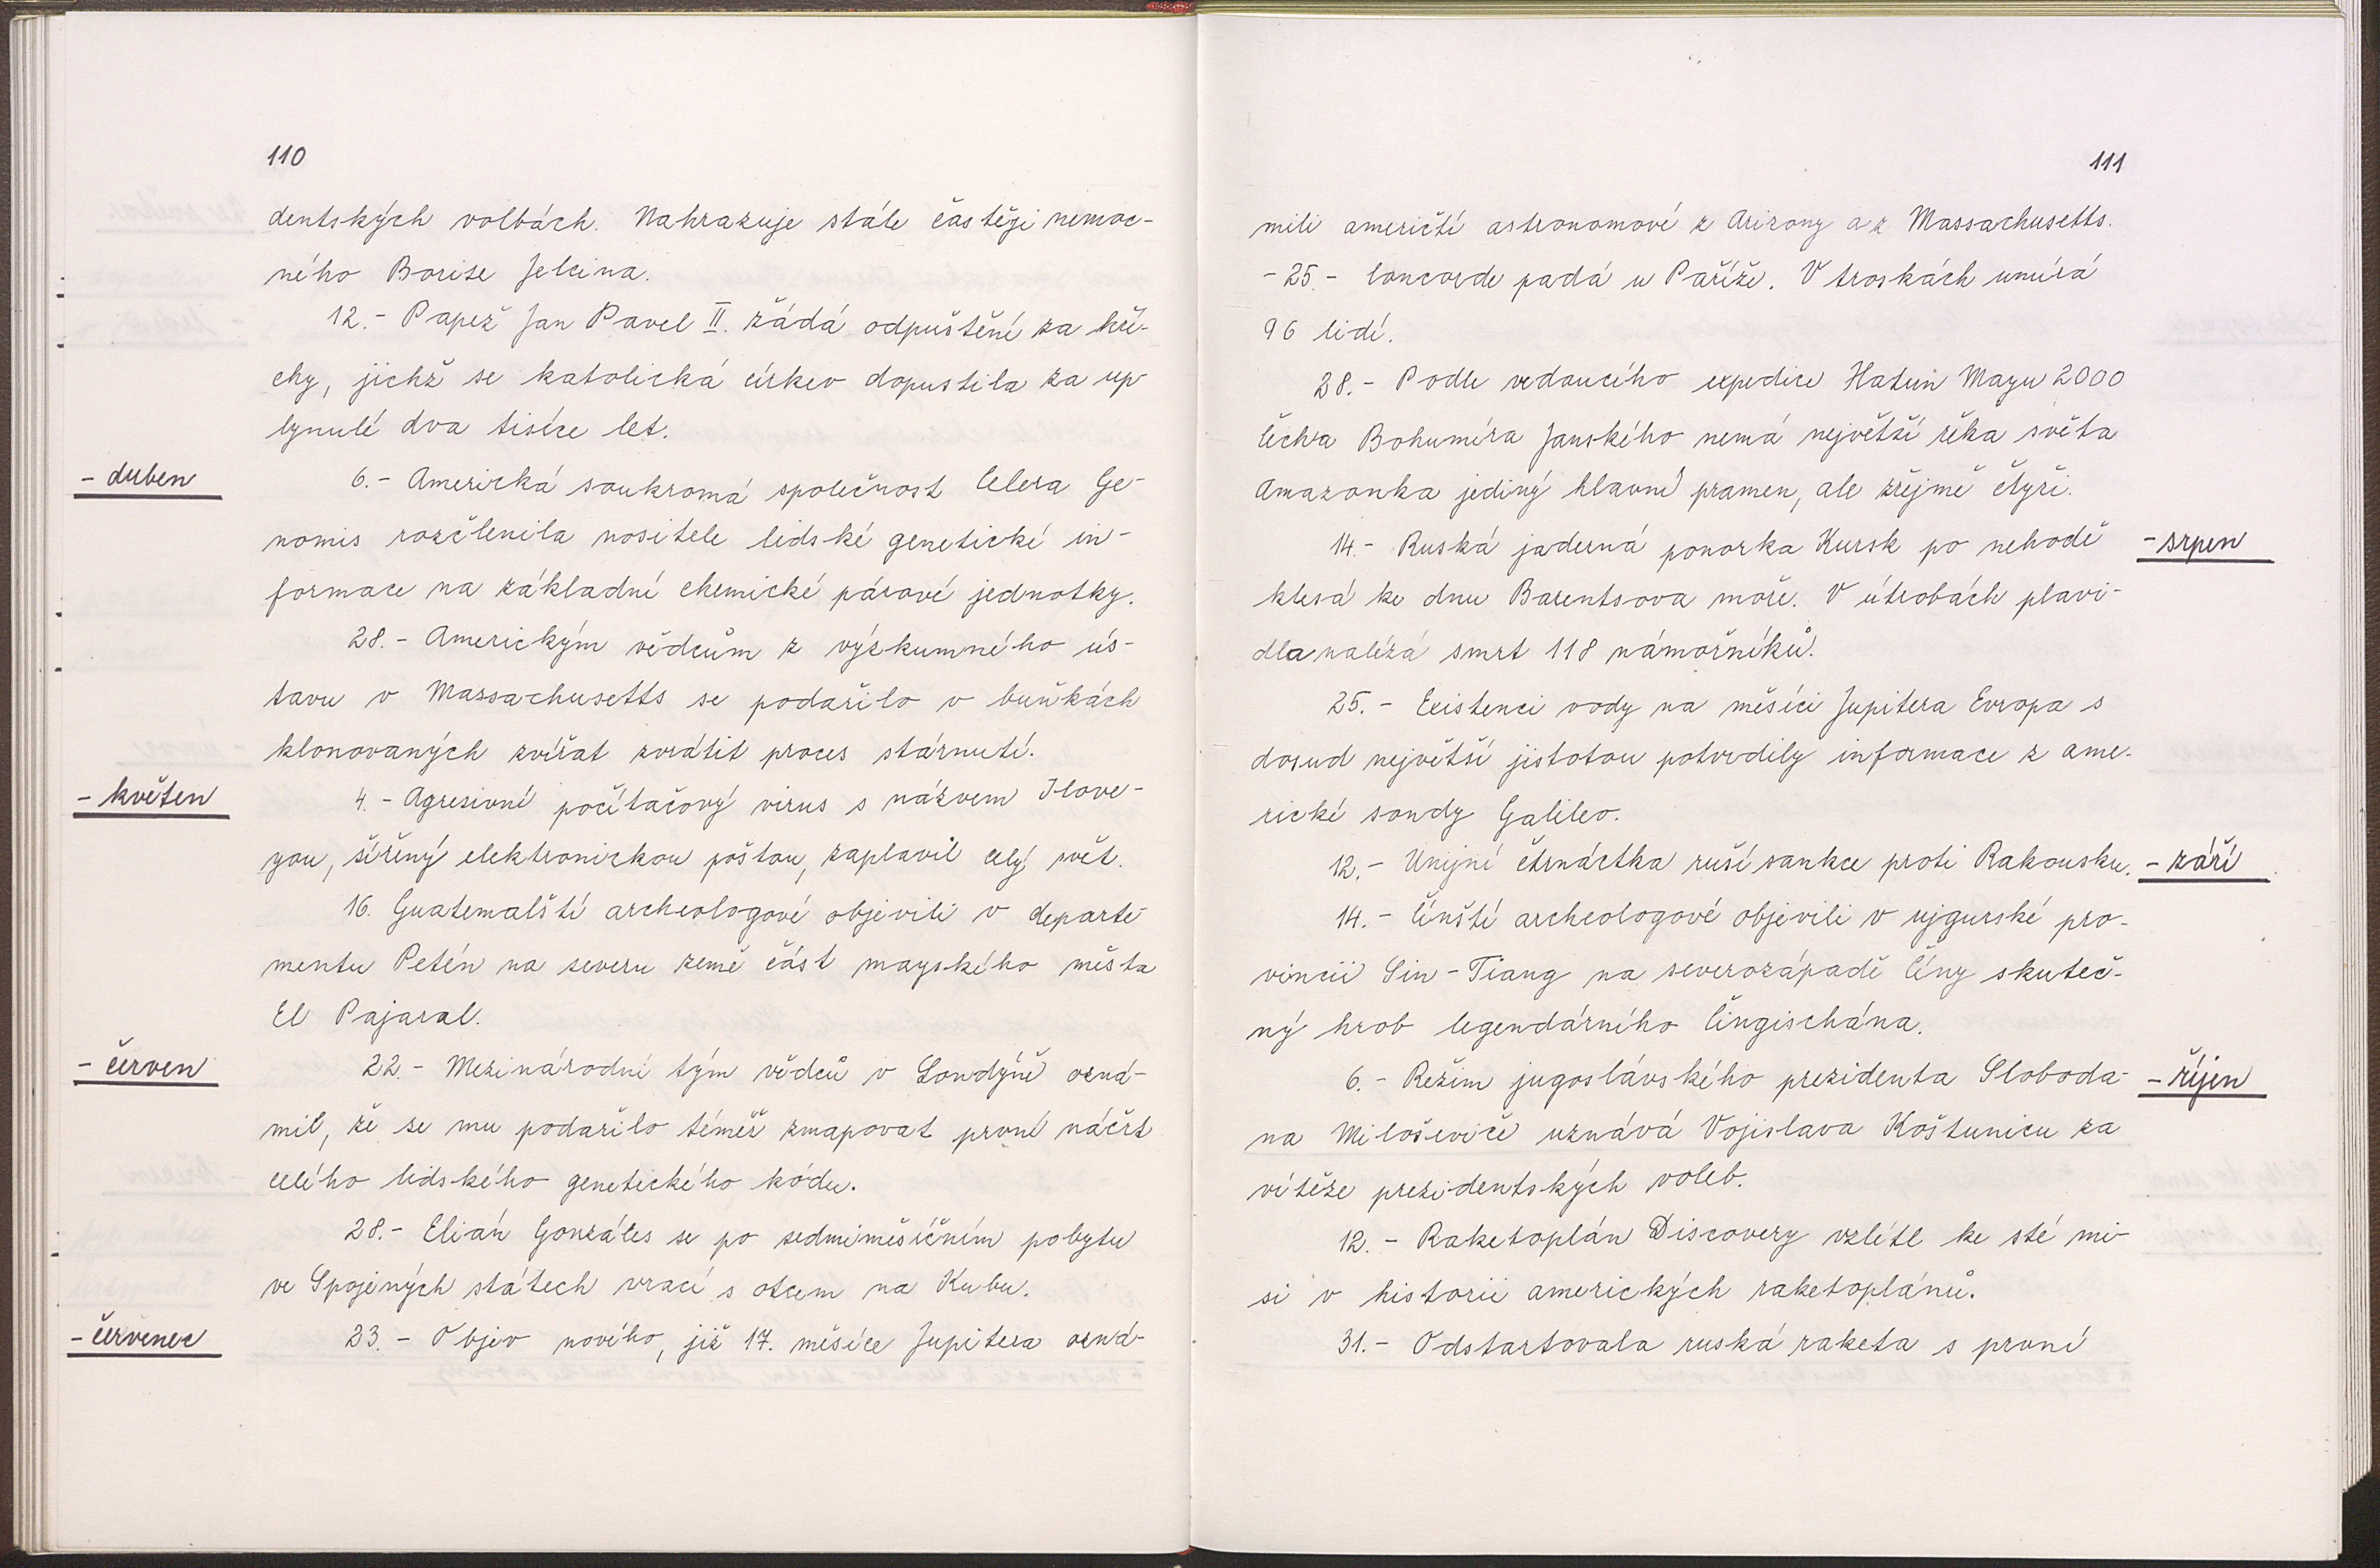 110
dentských volbách. Nahrazuje stále častěji nemoc-
ného Borise Jelcina.
12.- Papež Jan Pavel II. žádá odpuštění za hří-
chy, jichž se katolická církev dopustila za up-
lynulé dva tisíce let.
- duben
6.- Americká soukromá společnost Celera Ge-
nomis rozčlenila nositele lidské genetické in-
formace na základní chemické párové jednotky.
28.- Americkým vědcům z výzkumného ús-
tavu v Massachusetts se podařilo v buňkách
klonovaných zvířat zvrátit proces stárnutí.
- květen
4.- Agresivní počítačový virus s názvem Ilove-
you, šířený elektronickou poštou, zaplavil celý svět.
16. Guatemalští archeologové objevili v departe-
mentu Petén na severu země část mayského města
El Pajaral.
- červen
22.- Mezinárodní tým vědců v Londýně ozná-
mil, že se mu podařilo téměř zmapovat první náčrt
celého lidského genetického kódu.
28.- Elián Gonzáles se po sedmiměsíčním pobytu
ve Spojených státech vrací s otcem na Kubu.
- červenec
23.- Objev nového, již 17. měsíce Jupitera ozná-
111
mili američtí astronomové z Arizony a z Massachusetts.
- 25.- Concorde padá u Paříže. V troskách umírá
96 lidí.
28.- Podle vedoucího expedice Hatun Mayu 2000
Čecha Bohumíra Janského nemá největší řeka světa
Amazonka jediný hlavní pramen, ale zřejmě čtyři.
14.- Ruská jaderná ponorka Kursk po nehodě
- srpen
klesá ke dnu Barentsova moře. V útrobách plavi-
dla nalézá smrt 118 námořníků.
25.- Existenci vody na měsíci Jupitera Evropa s
dosud největší jistotou potvrdily informace z ame-
rické sondy Galileo.
12.- Unijní čtrnáctka ruší sankce proti Rakousku.
- září
14.- Čínští archeologové objevili v ujgurské pro-
vincii Sin-Tiang na severozápadě Číny skuteč-
ný hrob legendárního Čingischána.
6.- Režim jugoslávského prezidenta Sloboda-
- říjen
na Miloševiče uznává Vojislava Koštunicu za
vítěze prezidentských voleb.
12.- Raketoplán Discovery vzlétl ke sté mi-
si v historii amerických raketoplánů.
31.- Odstartovala ruská raketa s první